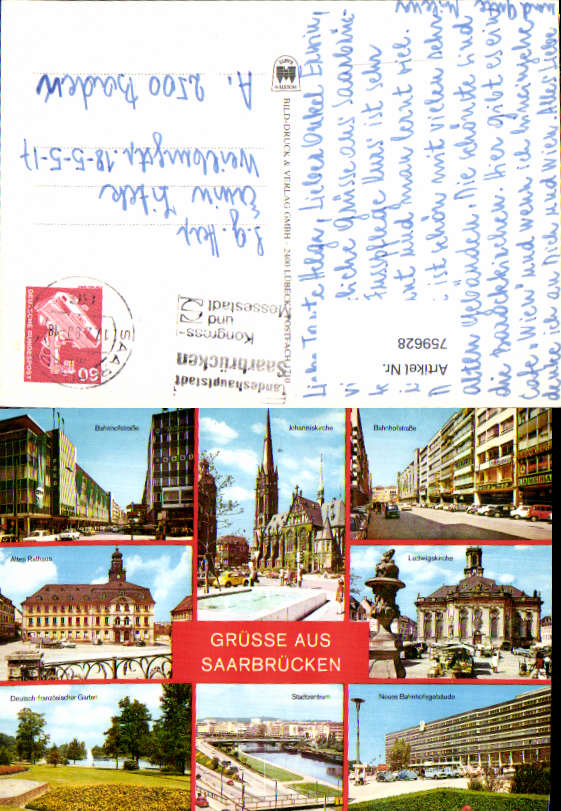 Liebe Tante Helga, Lieber Onkel Erwin,
liche Grüsse aus Saarbrük-
Fusspflege Kurs ist sehr
und man lernt viel.
ist schön mit vielen sehr
alten Gebäuden. Die schönste sind
die Barockkirchen. Hier gibt es ein
Cafe "Wien" und wenn ich hineingehe
denke ich an Dich und Wien. Alles Liebe
und gute
Artikel Nr.
759628
BILD-DRUCK & VERLAG GMBH · 2400 LÜBECK · POSTFACH
Landeshauptstadt
Saarbrücken
Kongress-
und
Messestadt
SAAR
60
DEUTSCHE BUNDESPOST
S.g. Herr
Erwin
Weilburgstr. 18-5-5-17
A. 2500 Baden
Bahnhofstraße
Johanniskirche
Bahnhofstraße
Altes Rathaus
Ludwigskirche
GRÜSSE AUS
SAARBRÜCKEN
Deutsch-französischer Garten
Stadtzentrum
Neues Bahnhofsgebäude